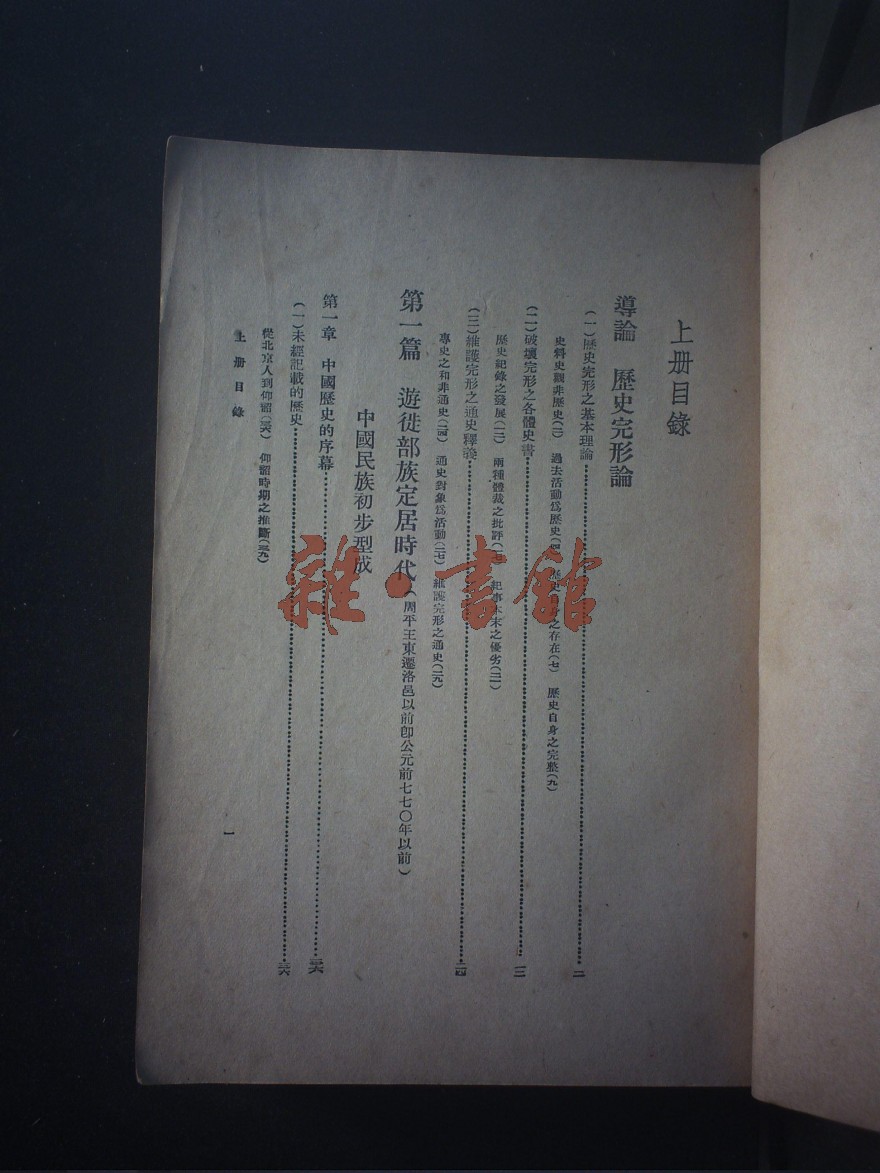 上册目錄
導論　歷史完形論
(一)歷史完形之基本理論……二
史料史觀非歷史(二)　過去活動爲歷史(四)　歷史自身之存在(七)　歷史自身之完整(九)
(二)破壞完形之各體史書……一三
歷史紀錄之發展(一三)　兩種體裁之批評　紀事本末之優劣(二一)
(三)維護完形之通史釋義……二四
專史之和非通史(二四)　通史對象爲活動(二七)　維護完形之通史(二九)
第一篇　遊徙部族定居時代(周平王東遷洛邑以前卽公元前七七〇年以前)
中國民族初步型成
第一章　中國歷史的序幕……三六
(一)未經記載的歷史……三六
從北京人到仰韶(三六)　仰韶時期之推斷(三九)
上册目錄
一
雜·書館